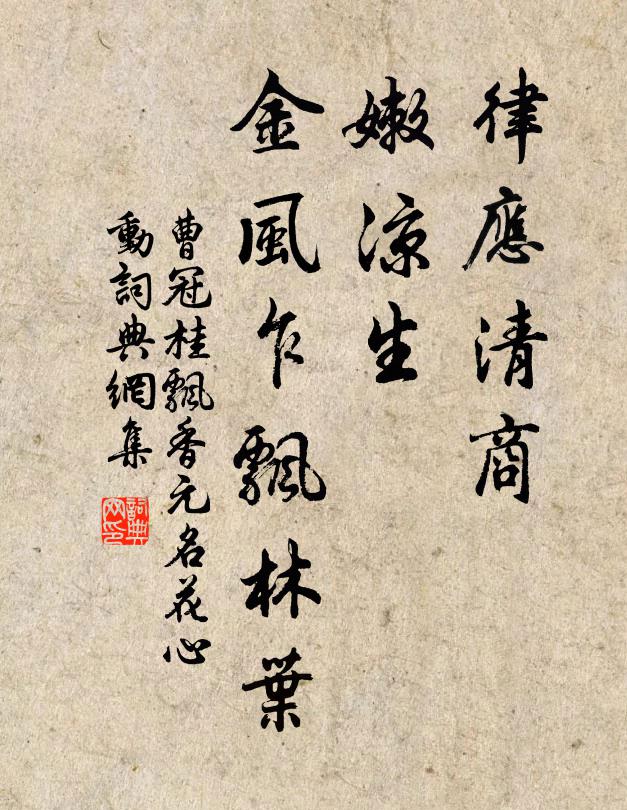 律應清商
嫩涼生
金風乍飄林葉
曹冠桂飄香元名花心
動詞典網集
詞典
网印